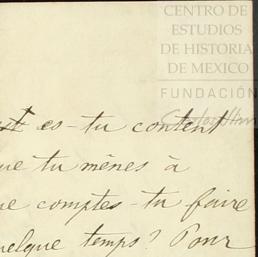 CENTRO DE
ESTUDIOS
DE HISTORIA
DE MÉXICO
FUNDACIÓN
es-tu content
que tu mènes à
comptes-tu faire
quelque temps? Pour